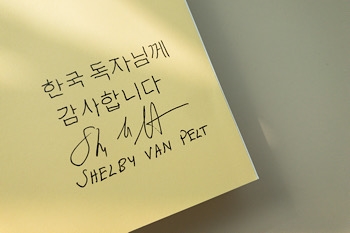 한국 독자님께
감사합니다
SHELBY VAN PELT